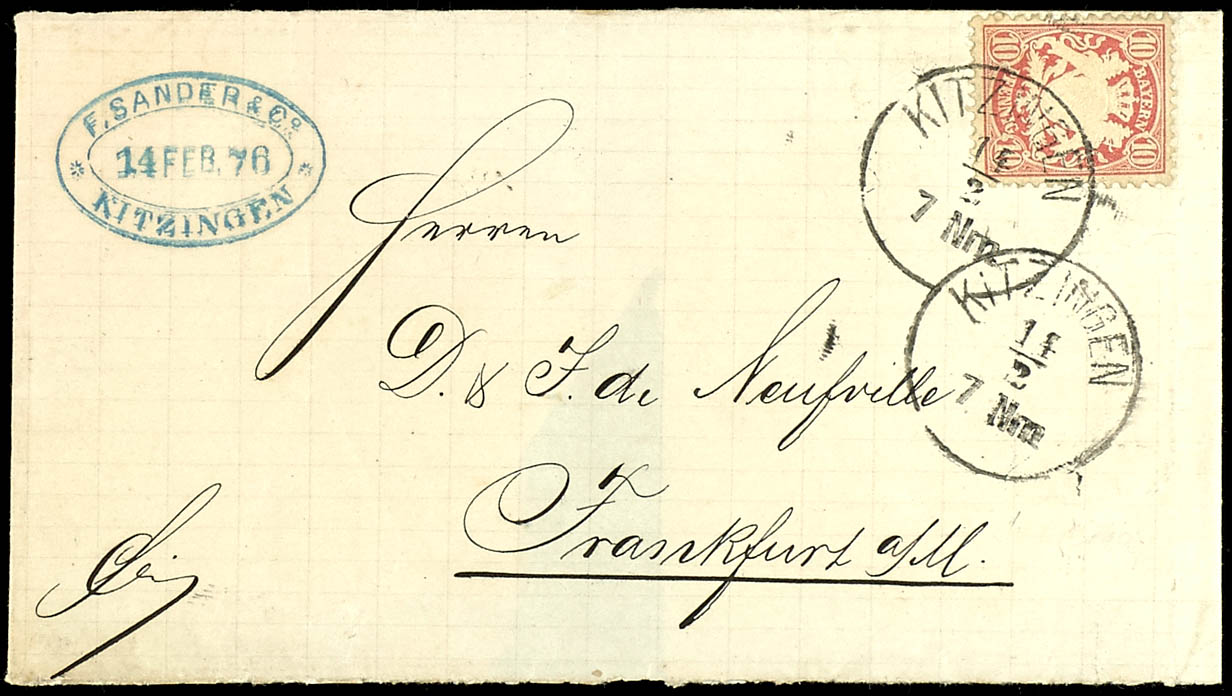 F. SANDER & Co.
* 14 FEB. 76 *
KITZINGEN
10 10
PFENNIG BAYERN
10 10
KITZINGEN
14
2
7 Nm
KITZINGEN
14
2
7 Nm
Herren
D. & J. de Neufville
Frankfurt a/M.